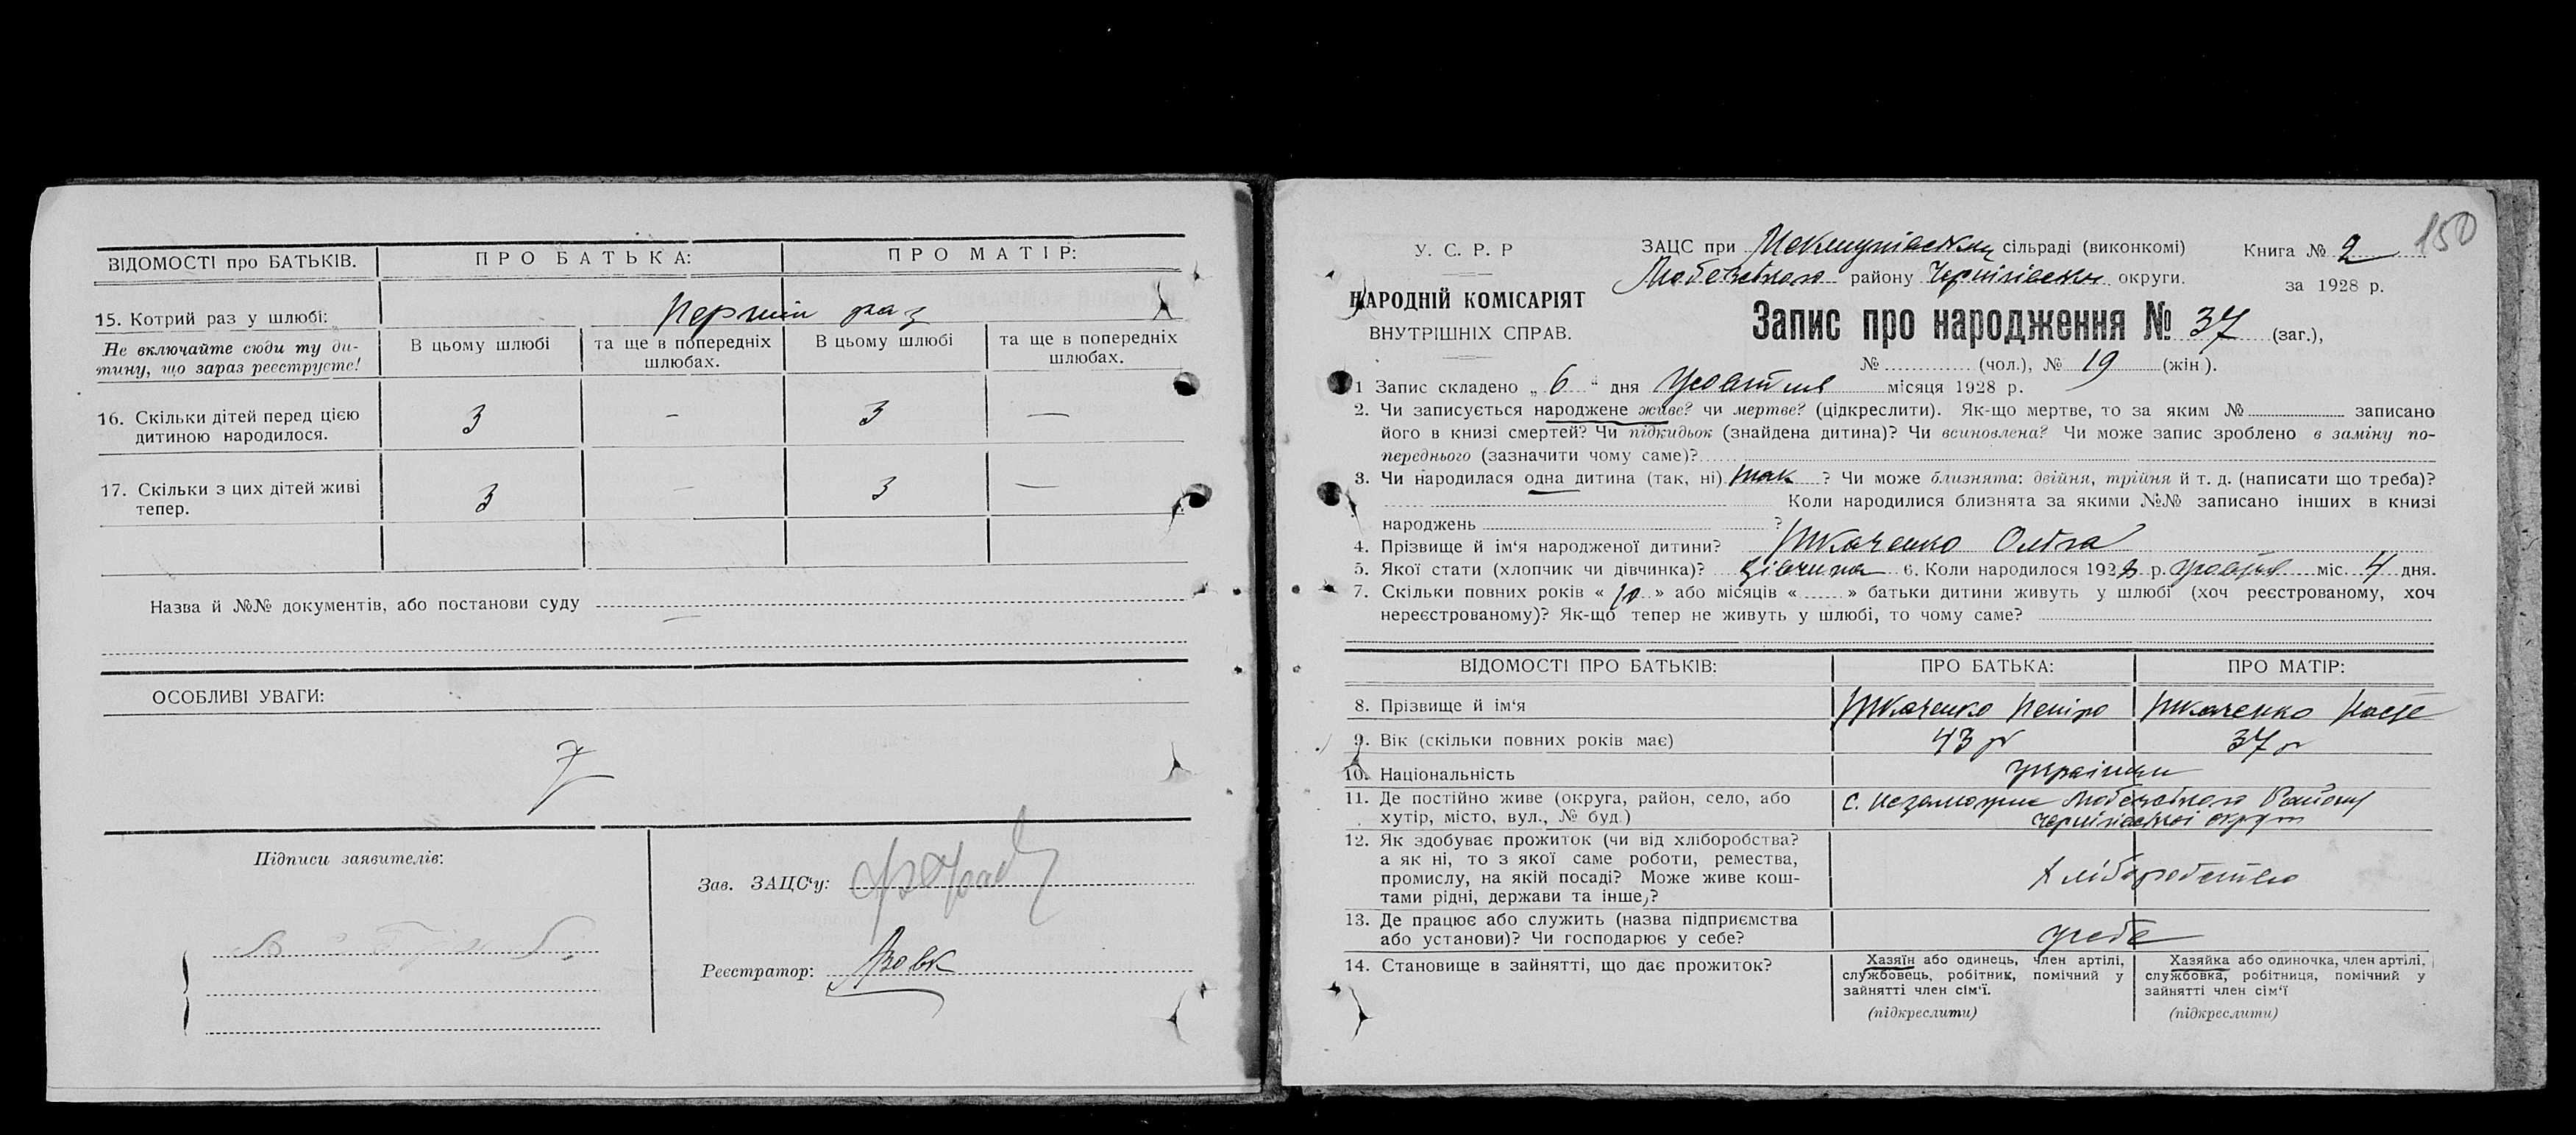 ВІДОМОСТІ про БАТЬКІВ. ПРО БАТЬКА: ПРО МАТІР:
15. Котрий раз у шлюбі: Перший раз
Не включайте сюди ту ди-
тину, що зараз реєструєте!
В цьому шлюбі
та ще в попередніх
шлюбах.
В цьому шлюбі
та ще в попередніх
шлюбах.
16. Скільки дітей перед цією
дитиною народилося.
3 – 3 —
17. Скільки з цих дітей живі
тепер.
3 – 3 —
Назва й №№ документів, або постанови суду
ОСОБЛИВІ УВАГИ:
Підписи заявителів:
Зав. ЗАЦС'у:
Реєстратор: Вовк
150
У. С. Р. Р
НАРОДНІЙ КОМІСАРІЯТ
ВНУТРІШНІХ СПРАВ.
ЗАЦС при сільраді (виконкомі)
району Чернігівськ округи.
Книга № 2
за 1928 р.
Запис про народження № 37 (заг.),
№ (чол.), № 19 (жін).
1 Запис складено „ 6 " дня Жовтня місяця 1928 р.
2. Чи записується народжене живе? чи мертве? (підкреслити). Як-що мертве, то за яким № записано
його в книзі смертей? Чи підкидьок (знайдена дитина)? Чи всиновлена? Чи може запис зроблено в заміну по-
переднього (зазначити чому саме)?
3. Чи народилася одна дитина (так, ні) так ? Чи може близнята: двійня, трійня й т. д. (написати що треба)?
Коли народилися близнята за якими №№ записано інших в книзі
народжень ?
4. Прізвище й ім'я народженої дитини? Ткаченко Ольга
5. Якої статі (хлопчик чи дівчинка)? Дівчина 6. Коли народилося 1928 р. Жовтня міс. 4 дня.
7. Скільки повних років « 10 » або місяців « » батьки дитини живуть у шлюбі (хоч реєстрованому, хоч
нереєстрованому)? Як-що тепер не живуть у шлюбі, то чому саме?
ВІДОМОСТІ ПРО БАТЬКІВ: ПРО БАТЬКА: ПРО МАТІР:
8. Прізвище й ім'я Ткаченко Петро Ткаченко
9. Вік (скільки повних років має) 43 р 37 р
10. Національність українці
11. Де постійно живе (округа, район, село, або
хутір, місто, вул., № буд.)
с. Незаможне Району
Чернігівської округи
12. Як здобуває прожиток (чи від хліборобства?
а як ні, то з якої саме роботи, ремества,
промислу, на якій посаді? Може живе кош-
тами рідні, держави та інше,?
Хліборобство
13. Де працює або служить (назва підприємства
або установи)? Чи господарює у себе?
у себе
14. Становище в зайнятті, що дає прожиток?
Хазяїн або одинець, член артілі,
службовець, робітник, помічний у
зайнятті член сім'ї.
(підкреслити)
Хазяйка або одиночка, член артілі,
службовка, робітниця, помічний у
зайнятті член сім'ї
(підкреслити)